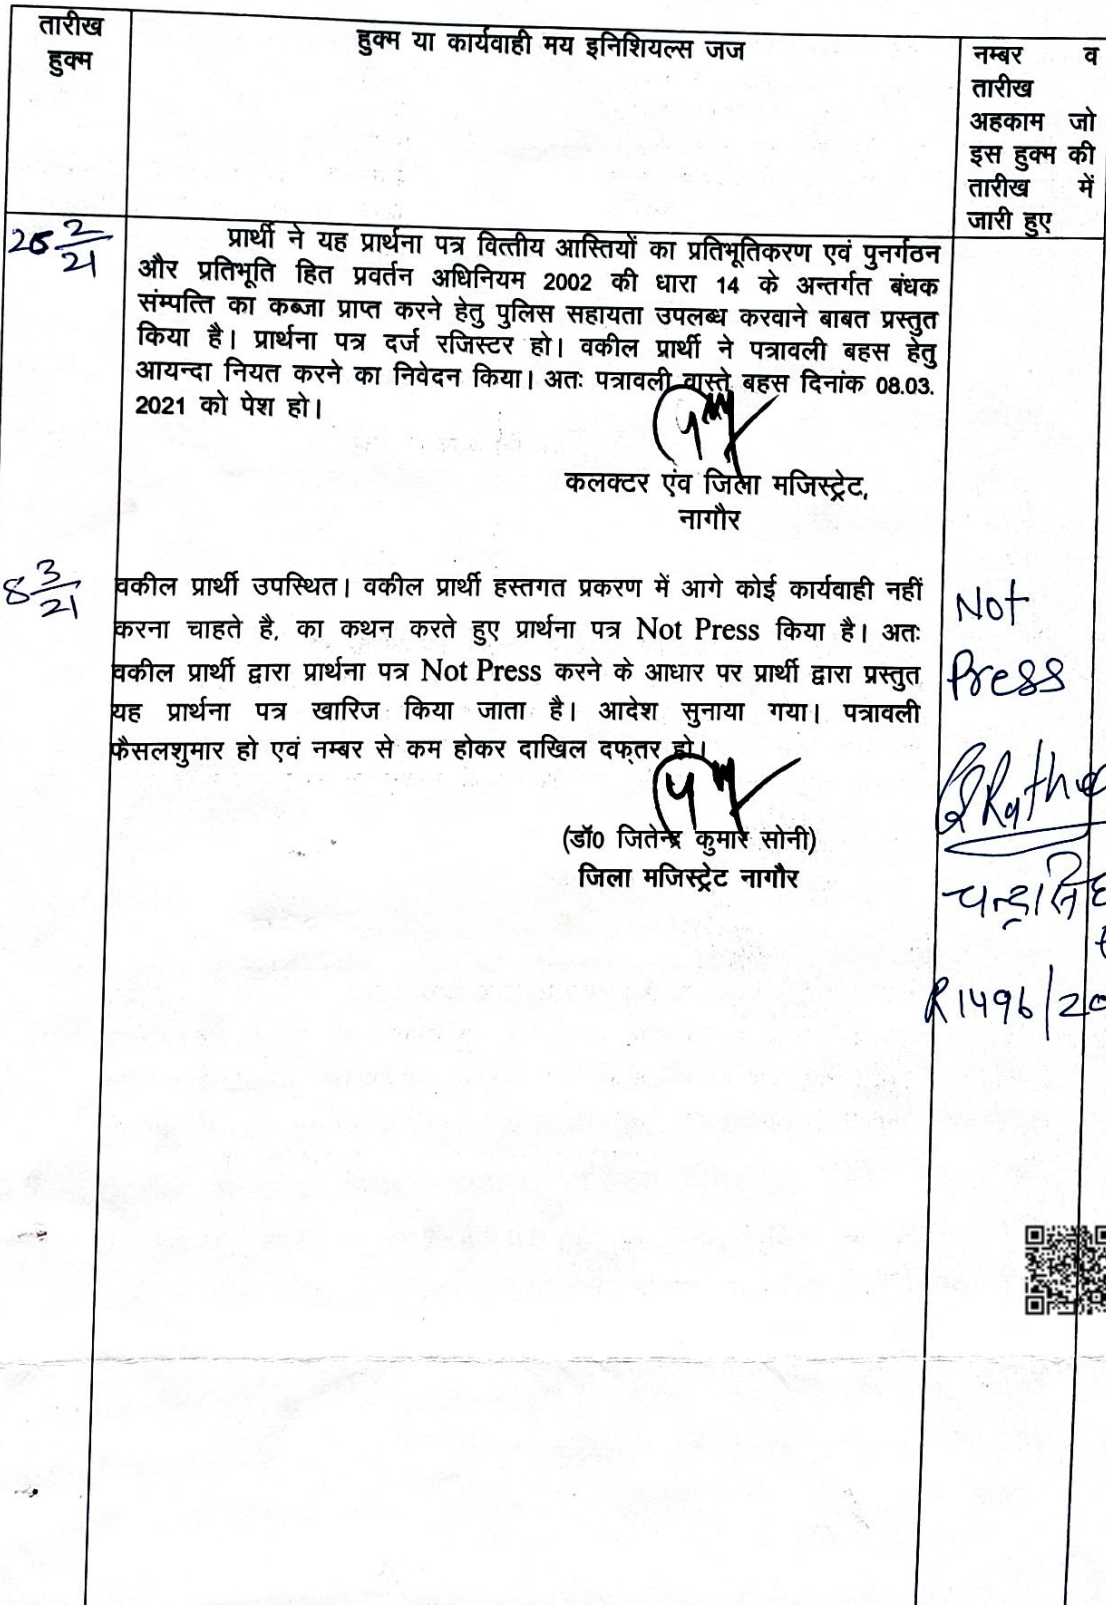 तारीख
हुक्म
हुक्म या कार्यवाही मय इनिशियल्स जज
नम्बर व
तारीख
अहकाम जो
इस हुक्म की
तारीख में
जारी हुए
2/21
प्रार्थी ने यह प्रार्थना पत्र वित्तीय आस्तियों का प्रतिभूतिकरण एवं पुनर्गठन
और प्रतिभूति हित प्रवर्तन अधिनियम 2002 की धारा 14 के अन्तर्गत बंधक
संम्पत्ति का कब्जा प्राप्त करने हेतु पुलिस सहायता उपलब्ध करवाने बाबत प्रस्तुत
किया है। प्रार्थना पत्र दर्ज रजिस्टर हो। वकील प्रार्थी ने पत्रावली बहस हेतु
आयन्दा नियत करने का निवेदन किया। अतः पत्रावली वास्ते बहस दिनांक 08.03.
2021 को पेश हो।
कलक्टर एंव जिला मजिस्ट्रेट,
नागौर
8 3/21
वकील प्रार्थी उपस्थित। वकील प्रार्थी हस्तगत प्रकरण में आगे कोई कार्यवाही नहीं
करना चाहते है, का कथन करते हुए प्रार्थना पत्र Not Press किया है। अतः
वकील प्रार्थी द्वारा प्रार्थना पत्र Not Press करने के आधार पर प्रार्थी द्वारा प्रस्तुत
यह प्रार्थना पत्र खारिज किया जाता है। आदेश सुनाया गया। पत्रावली
फैसलशुमार हो एवं नम्बर से कम होकर दाखिल दफ्तर हो।
(डॉ0 जितेन्द्र कुमार सोनी)
जिला मजिस्ट्रेट नागौर
Not
Press
R1496/20